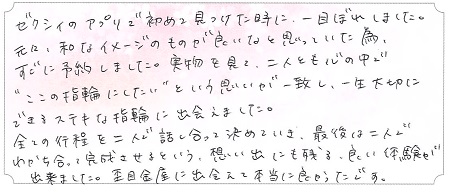 ゼクシィのアプリで初めて見つけた時に、一目ぼれしました。
元々、和なイメージのものが良いなと思っていた為、
すぐに予約しました。実物を見て、二人とも心の中で
"ここの指輪にしたい"という思いが一致し、一生大切に
できるステキな指輪に出会えました。
全ての行程を二人で話し合って決めていき、最後は二人で
わかち合って完成させるという、想い出にも残る、良い体験が
出来ました。杢目金屋に出会えて本当に良かったです。